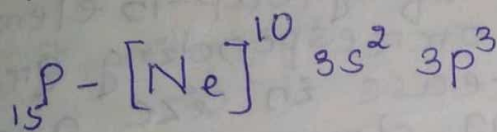 ₁₅P - [Ne]¹⁰ 3s² 3p³